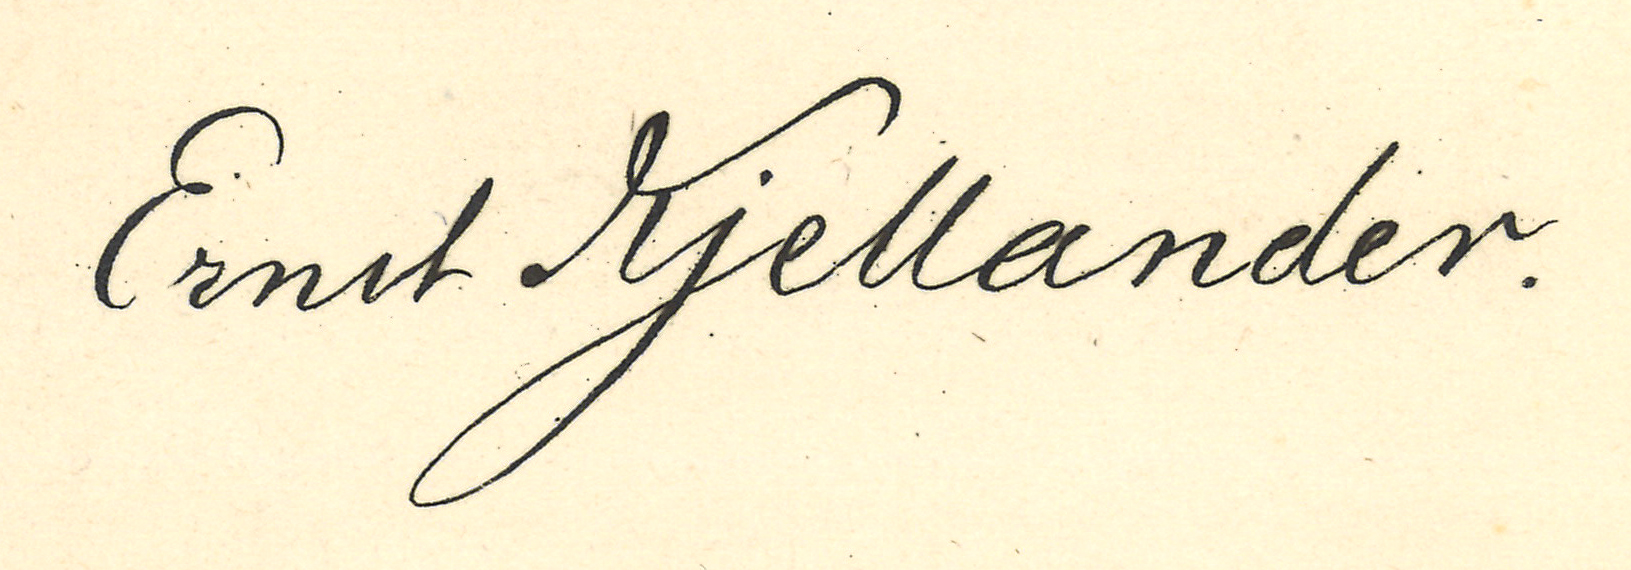 Ernst Kjellander.